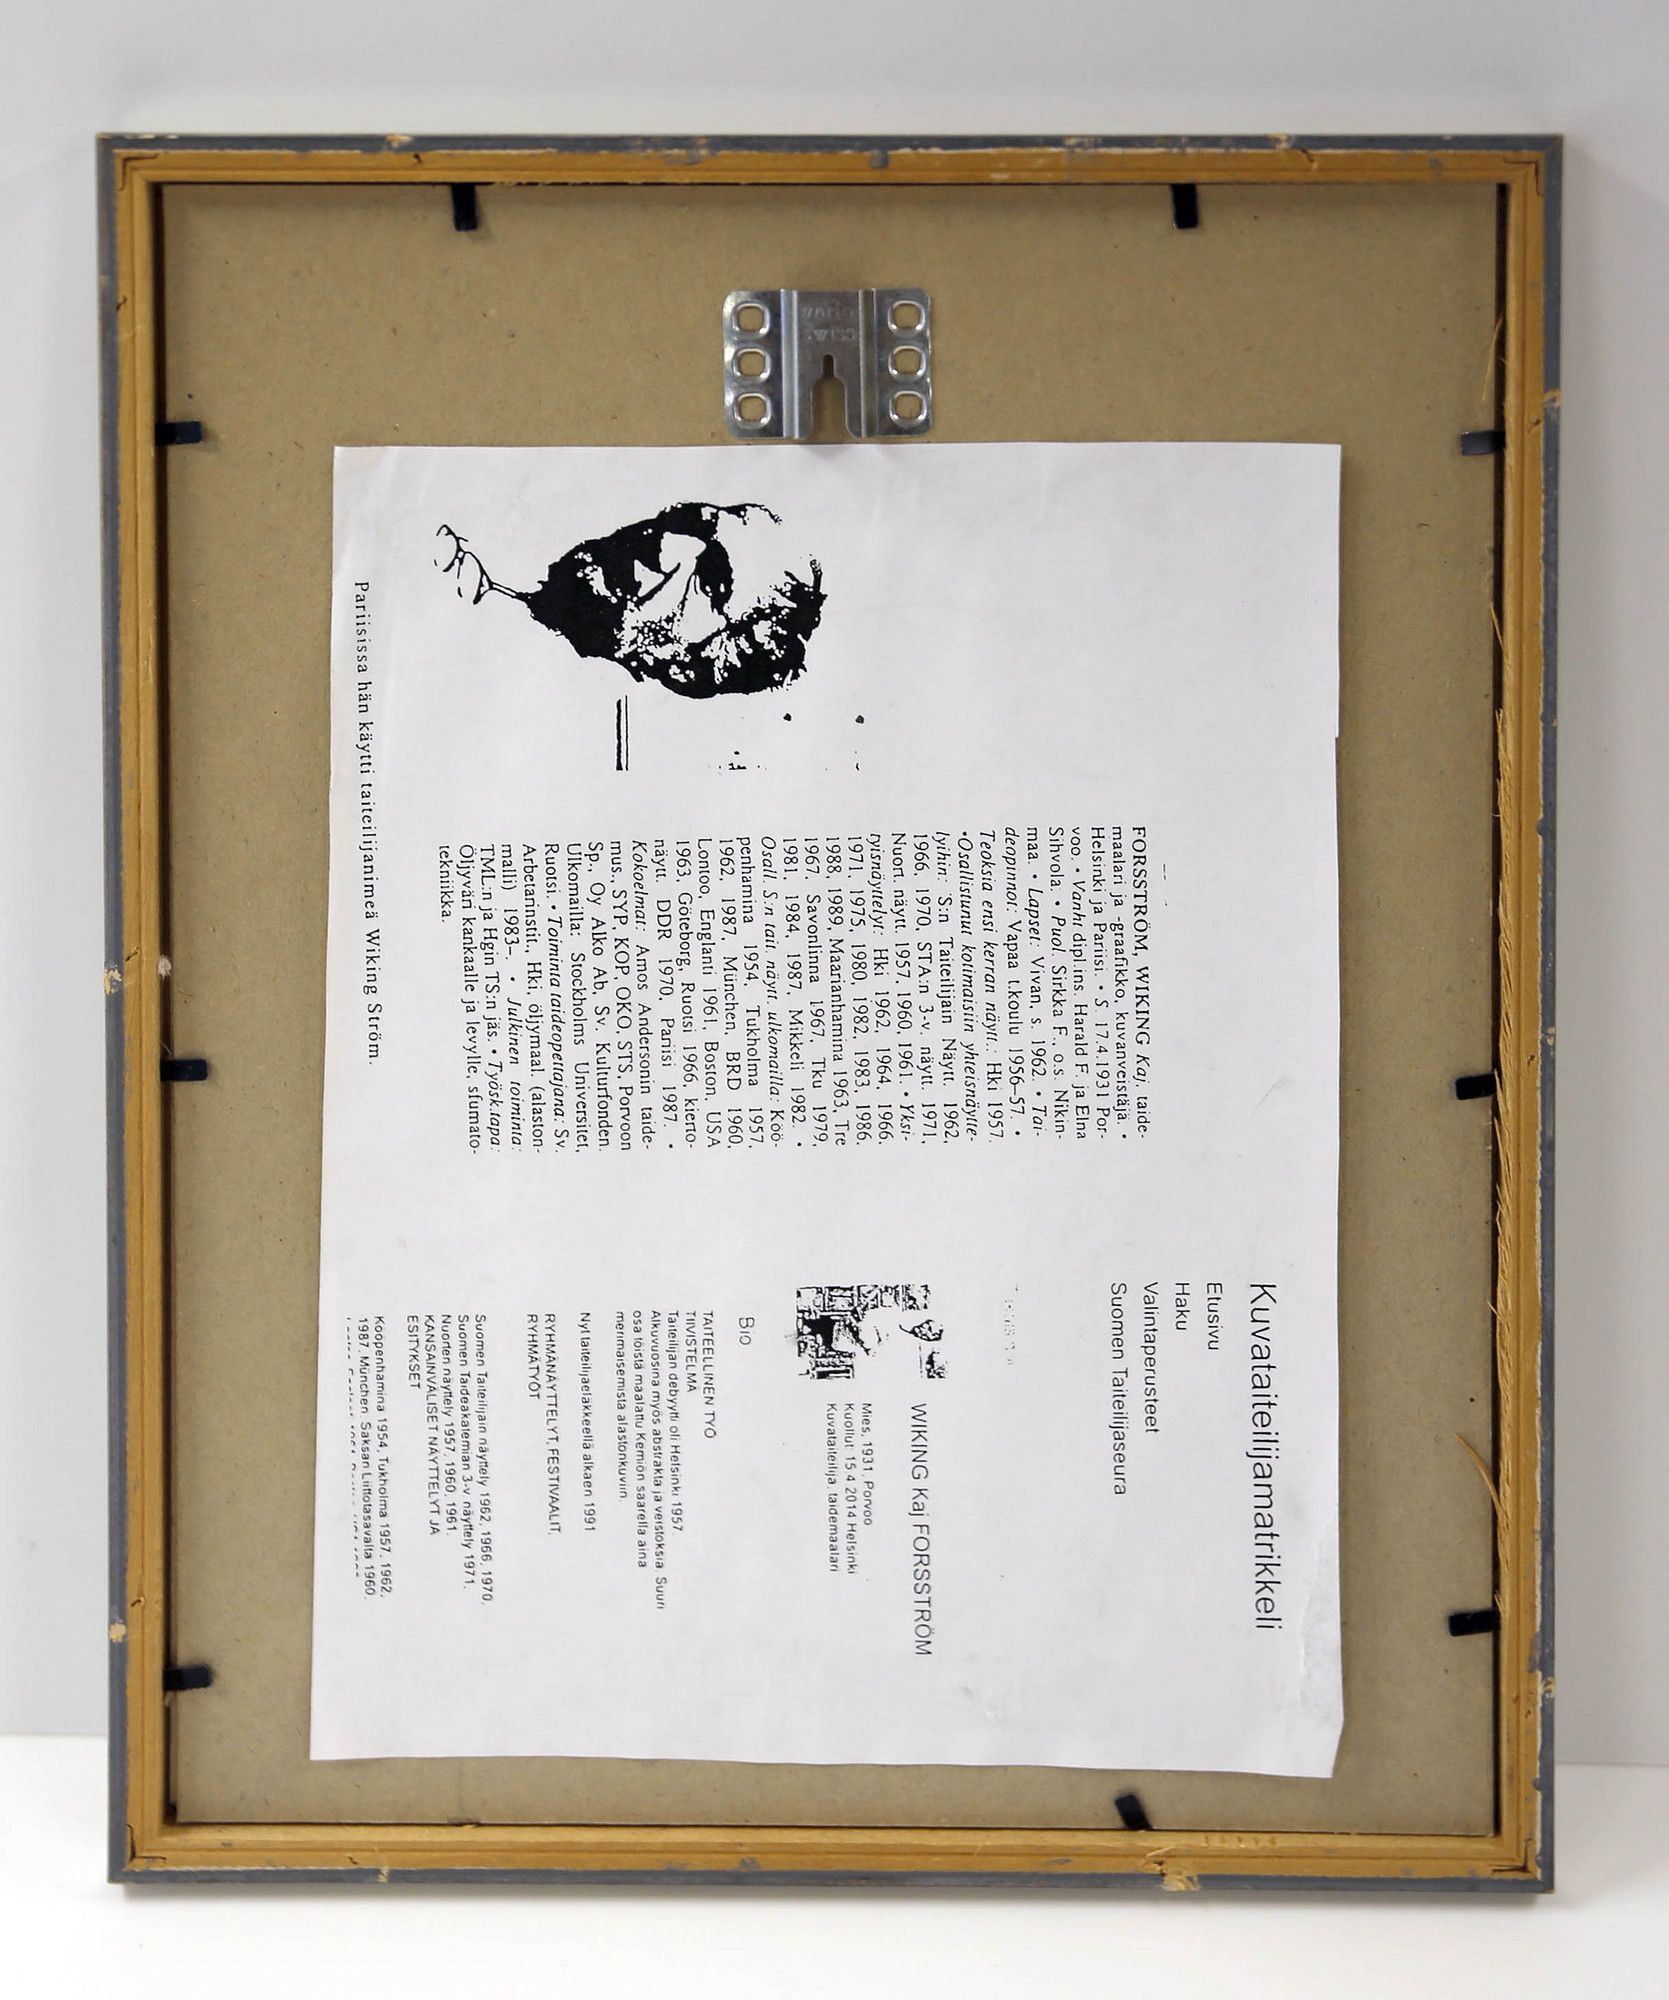 FORSSTRÖM, WIKING Kaj, taide-
maalari ja -graafikko, kuvanveistäjä. •
Helsinki ja Pariisi. • S. 17.4.1931 Por-
voo. • Vanh: dipl.ins. Harald F. ja Elna
Sihvola. • Puol. Sirkka F., o.s. Nikin-
maa. • Lapset: Vivan, s. 1962. • Tai-
deopinnot: Vapaa t.koulu 1956–57. •
Teoksia ensi kerran näytt.: Hki 1957.
• Osallistunut kotimaisiin yhteisnäytte-
lyihin: S:n Taiteilijain Näytt. 1962,
1966, 1970, STA:n 3-v. näytt. 1971,
Nuort. näytt. 1957, 1960, 1961. • Yksi-
tyisnäyttelyt: Hki 1962, 1964, 1966,
1971, 1975, 1980, 1982, 1983, 1986,
1988, 1989, Maarianhamina 1963, Tre
1967, Savonlinna 1967, Tku 1979,
1981, 1984, 1987, Mikkeli 1982. •
Osall. S:n tait. näytt. ulkomailla: Köö-
penhamina 1954, Tukholma 1957,
1962, 1987, München, BRD 1960,
Lontoo, Englanti 1961, Boston, USA
1963, Göteborg, Ruotsi 1966, kierto-
näytt. DDR 1970, Pariisi 1987. •
Kokoelmat: Amos Andersonin taide-
mus., SYP, KOP, OKO, STS, Porvoon
Sp., Oy Alko Ab, Sv. Kulturfonden.
Ulkomailla: Stockholms Universitet,
Ruotsi. • Toiminta taideopettajana: Sv.
Arbetarinstit., Hki, öljymaal. (alaston-
malli) 1983–. • Julkinen toiminta:
TML:n ja Hgin TS:n jäs. • Työsk.tapa:
Öljyväri kankaalle ja levylle, sfumato-
tekniikka.
Pariisissa hän käytti taiteilijanimeä Wiking Ström.
Kuvataiteilijamatrikkeli
Etusivu
Haku
Valintaperusteet
Suomen Taiteilijaseura
WIKING Kaj FORSSTRÖM
Mies, 1931, Porvoo
Kuollut: 15.4.2014 Helsinki
Kuvataiteilija, taidemaalari
BIO
TAITEELLINEN TYÖ
TIIVISTELMÄ
Taiteilijan debyytti oli Helsinki 1957.
Alkuvuosina myös abstrakta ja veistoksia. Suuri
osa töistä maalattu Kemiön saarella aina
merimaisemista alastonkuviin
Nyt taiteilijaeläkkeellä alkaen 1991
RYHMÄNÄYTTELYT, FESTIVAALIT,
RYHMÄTYÖT
Suomen Taiteilijain näyttely 1962, 1966, 1970,
Suomen Taideakatemian 3-v näyttely 1971,
Nuorten näyttely 1957, 1960, 1961,
KANSAINVÄLISET NÄYTTELYT JA
ESITYKSET
Kööpenhamina 1954, Tukholma 1957, 1962,
1987, München, Saksan Liittotasavalta 1960,